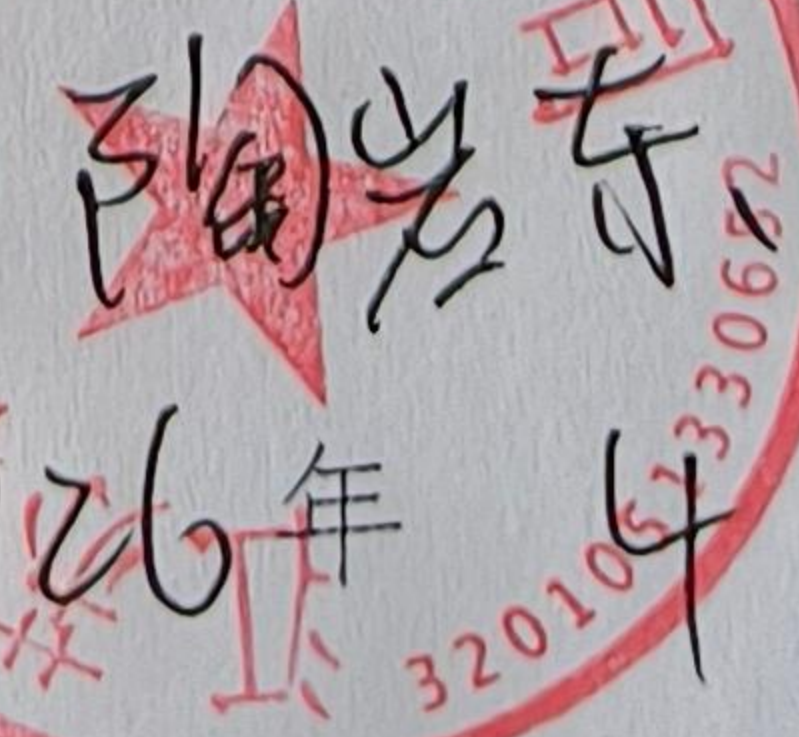 陶岩东
26年 4
3201051330652